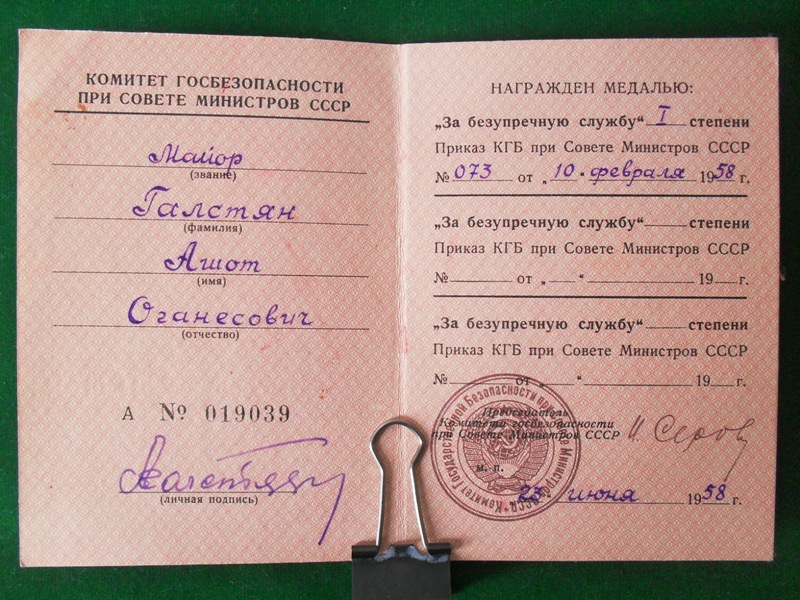 КОМИТЕТ ГОСБЕЗОПАСНОСТИ
ПРИ СОВЕТЕ МИНИСТРОВ СССР
Майор
(звание)
Галстян
(фамилия)
Ашот
(имя)
Оганесович
(отчество)
А № 019039
(личная подпись)
НАГРАЖДЕН МЕДАЛЬЮ:
„За безупречную службу" I степени
Приказ КГБ при Совете Министров СССР
№ 073 от „10" февраля 1958 г.
„За безупречную службу" степени
Приказ КГБ при Совете Министров СССР
№ от „ " 19 г.
„За безупречную службу" степени
Приказ КГБ при Совете Министров СССР
№ от „ " 19 г.
Председатель
Комитета госбезопасности
при Совете Министров СССР И. Серов
м. п.
23 июня 1958 г.
Комитет Государственной Безопасности при Совете Министров СССР